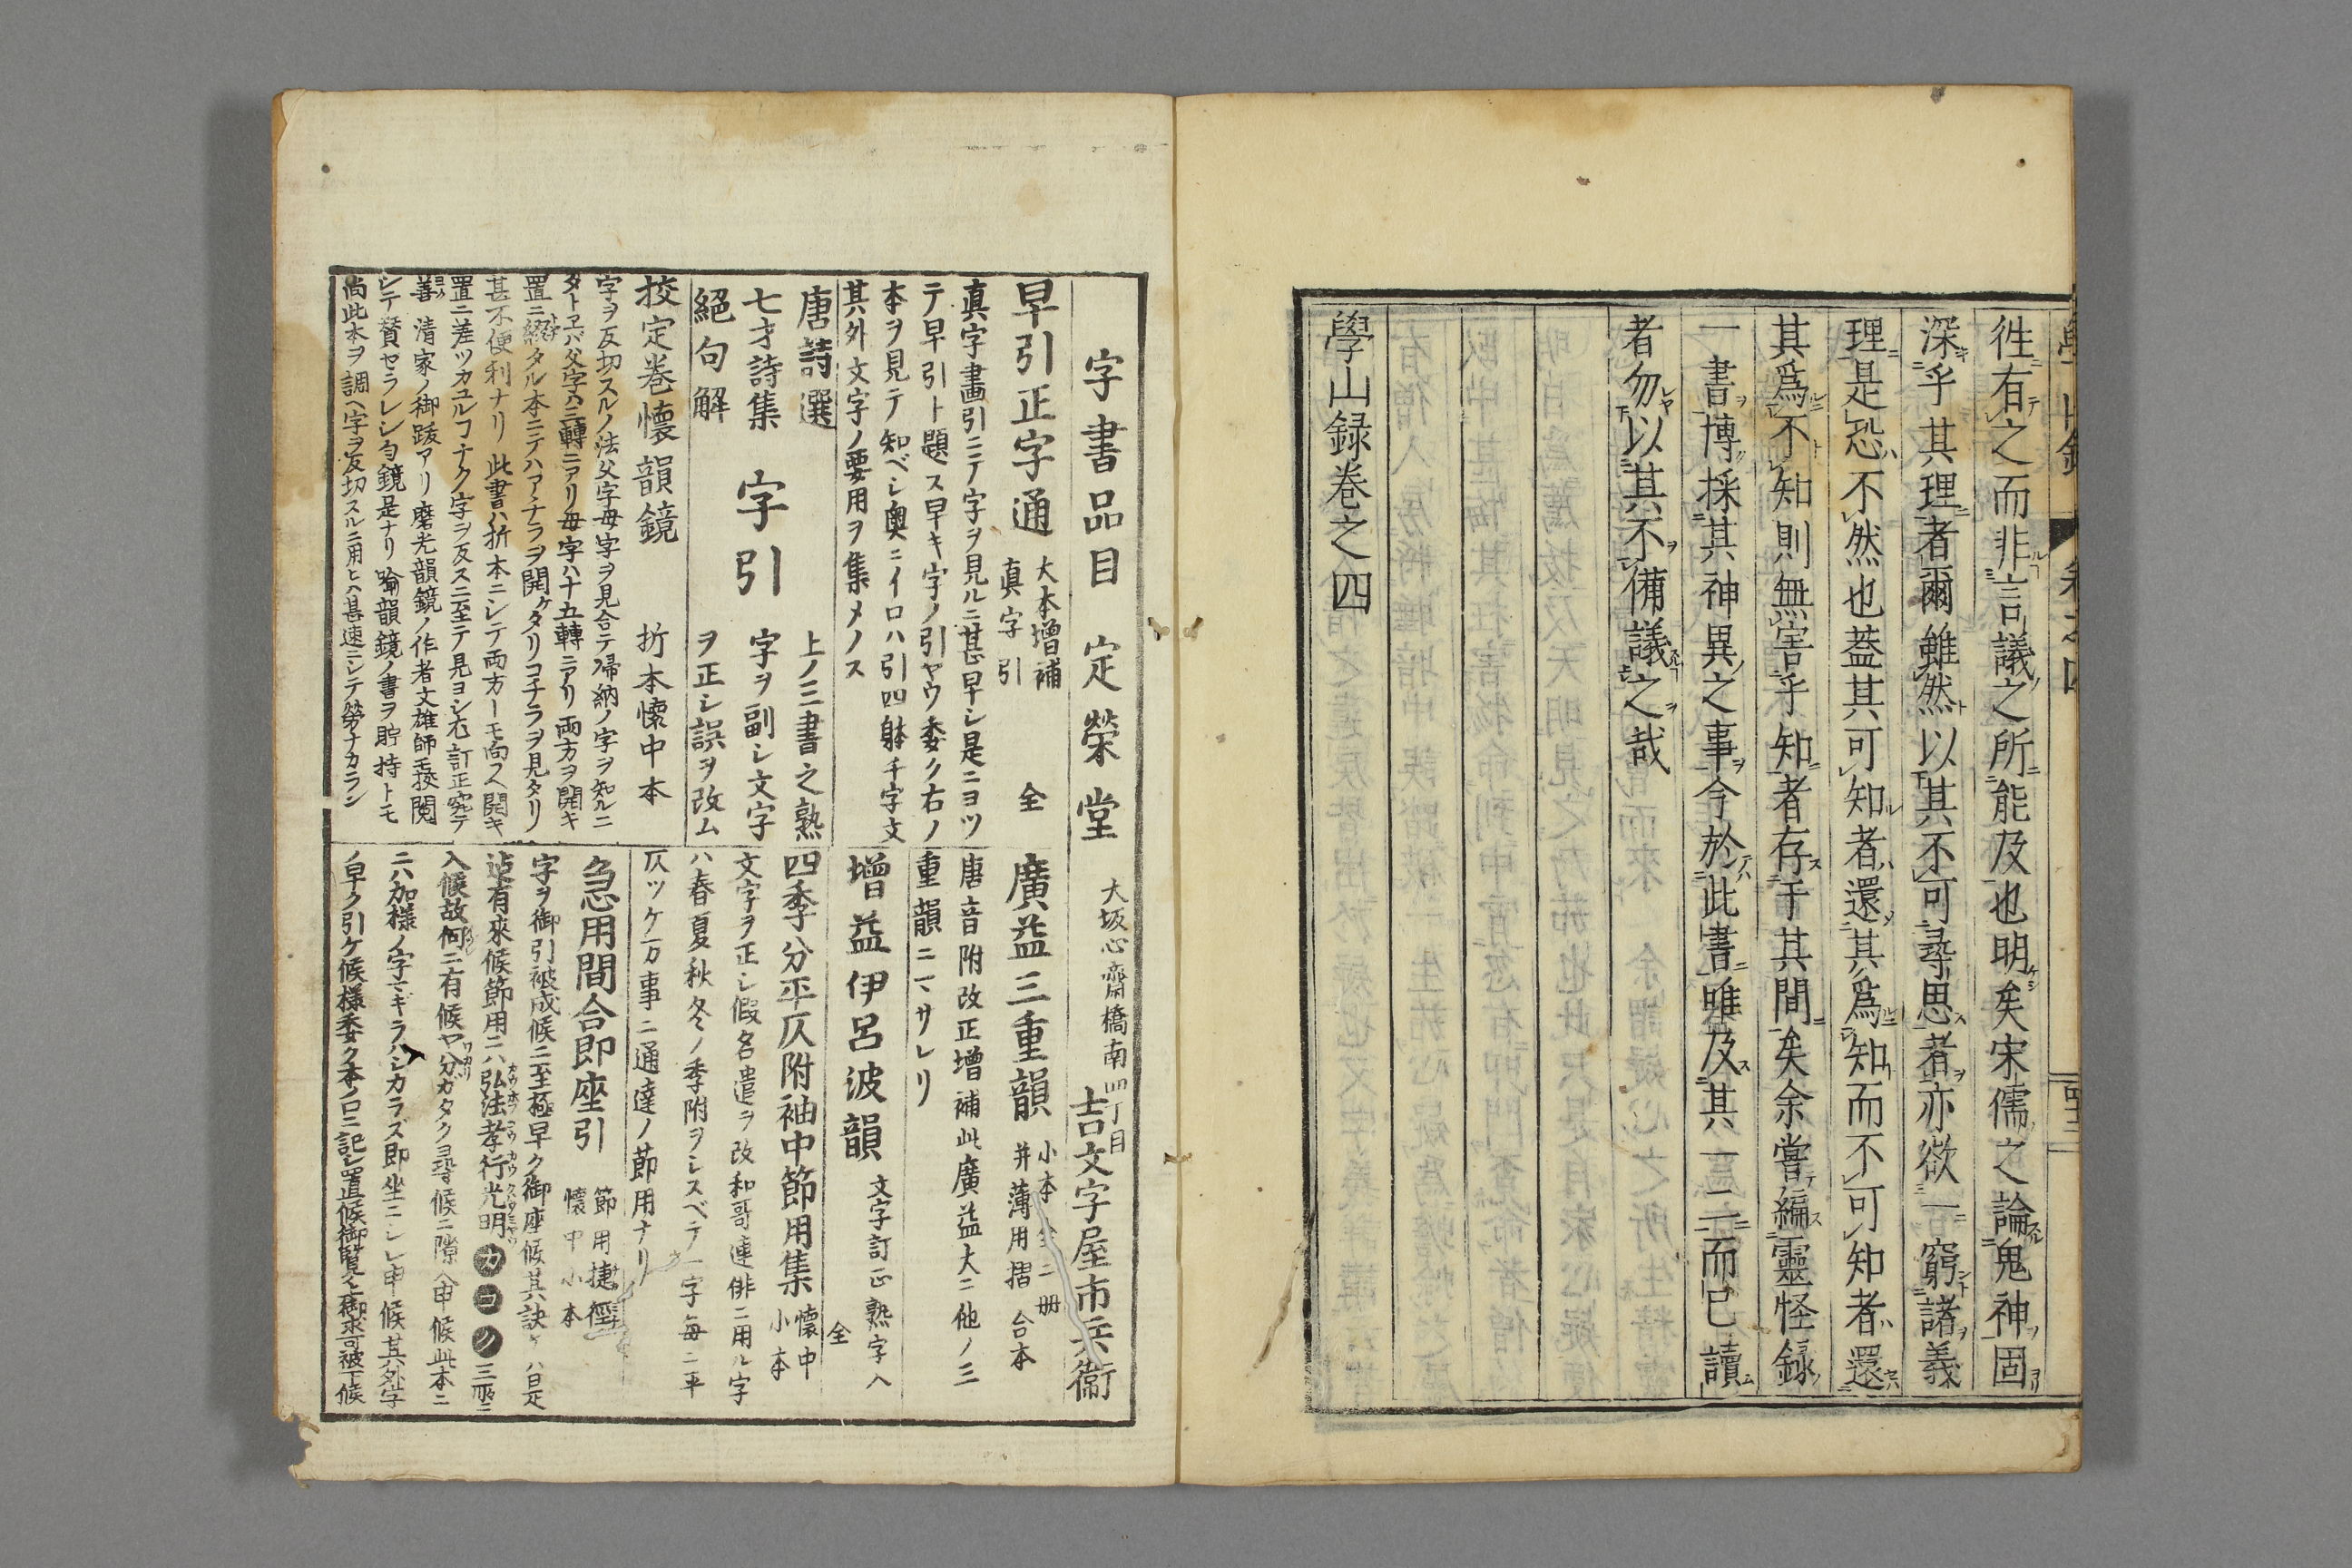 徃有之而非言議之所能及也明矣宋儒之論鬼神固
深乎其理者爾雖然以其不可尋思者亦欲一窮諸義
理是恐不然也蓋其可知者還其爲知而不可知者還
其爲不知則無害乎知者存于其間矣余嘗編靈怪録
一書博採其神異之事今於此書唯及其一二而已讀
者勿以其不備議之哉
學山録巻之四
字書品目 定榮堂 大坂心齋橋南四丁目 吉文字屋市兵衞
早引正字通 大本増補 真字引 全
真字畫引ニテ字ヲ見ルニ甚早シ是ニヨツ
テ早引ト題ス早キ字ノ引ヤウ委ク右ノ
本ヲ見テ知ベシ奥ニイロハ引四躰千字文
其外文字ノ要用ヲ集メノス
唐詩選
七才詩集 字引
絕句解
上ノ三書之熟
字ヲ副シ文字
ヲ正シ誤ヲ改ム
挍定巻懷韻鏡 折本懷中本
字ヲ反切スルノ法父字母字ヲ見合テ帰納ノ字ヲ知ルニ
タトヱバ父字ハ三轉ニアリ母字ハ十五轉ニアリ両方ヲ開キ
置ニ綴タル本ニテハアチラヲ開ケタリコチラヲ見タリ
甚不便利ナリ此書ハ折本ニシテ両方一モ向ヘ開キ
置ニ差ツカユルコナク字ヲ反スニ至テ見ヨシ尤訂正究テ
善 清家ノ御跋アリ磨光韻鏡ノ作者文雄師モ挍閲
シテ賛セラレシ勻鏡是ナリ喻韻鏡ノ書ヲ貯持トモ
尚此本ヲ調ヘ字ヲ反切スルニ用ヒハ甚速ニシテ勞ナカラン
廣益三重韻 小本全二册 并薄用摺合本
唐音附改正增補此廣益大ニ他ノ三
重韻ニマサレリ
增益伊呂波韻 文字訂正熟字入 全
四季分平仄附袖中節用集 懷中小本
文字ヲ正シ假名遣ヲ改和哥連俳ニ用ル字
ハ春夏秋冬ノ季附ヲシスベテ一字毎ニ平
仄ツケ万事ニ通達ノ節用ナリ
急用間合即座引 節用捷徑 懷中小本
字ヲ御引被成候ニ至極早ク御座候其訣ケハ是
迠有來候節用ニハ弘法孝行光明カコク三所ニ
入候故何ニ有候ヤ分ガタク尋候ニ隙入申候此本ニ
ニハ加樣ノ字マギラハシカラズ即坐ニシレ申候其外字
ノ早ク引ケ候樣委ク本ノ口ニ記シ置候御覧之上御求可被下候